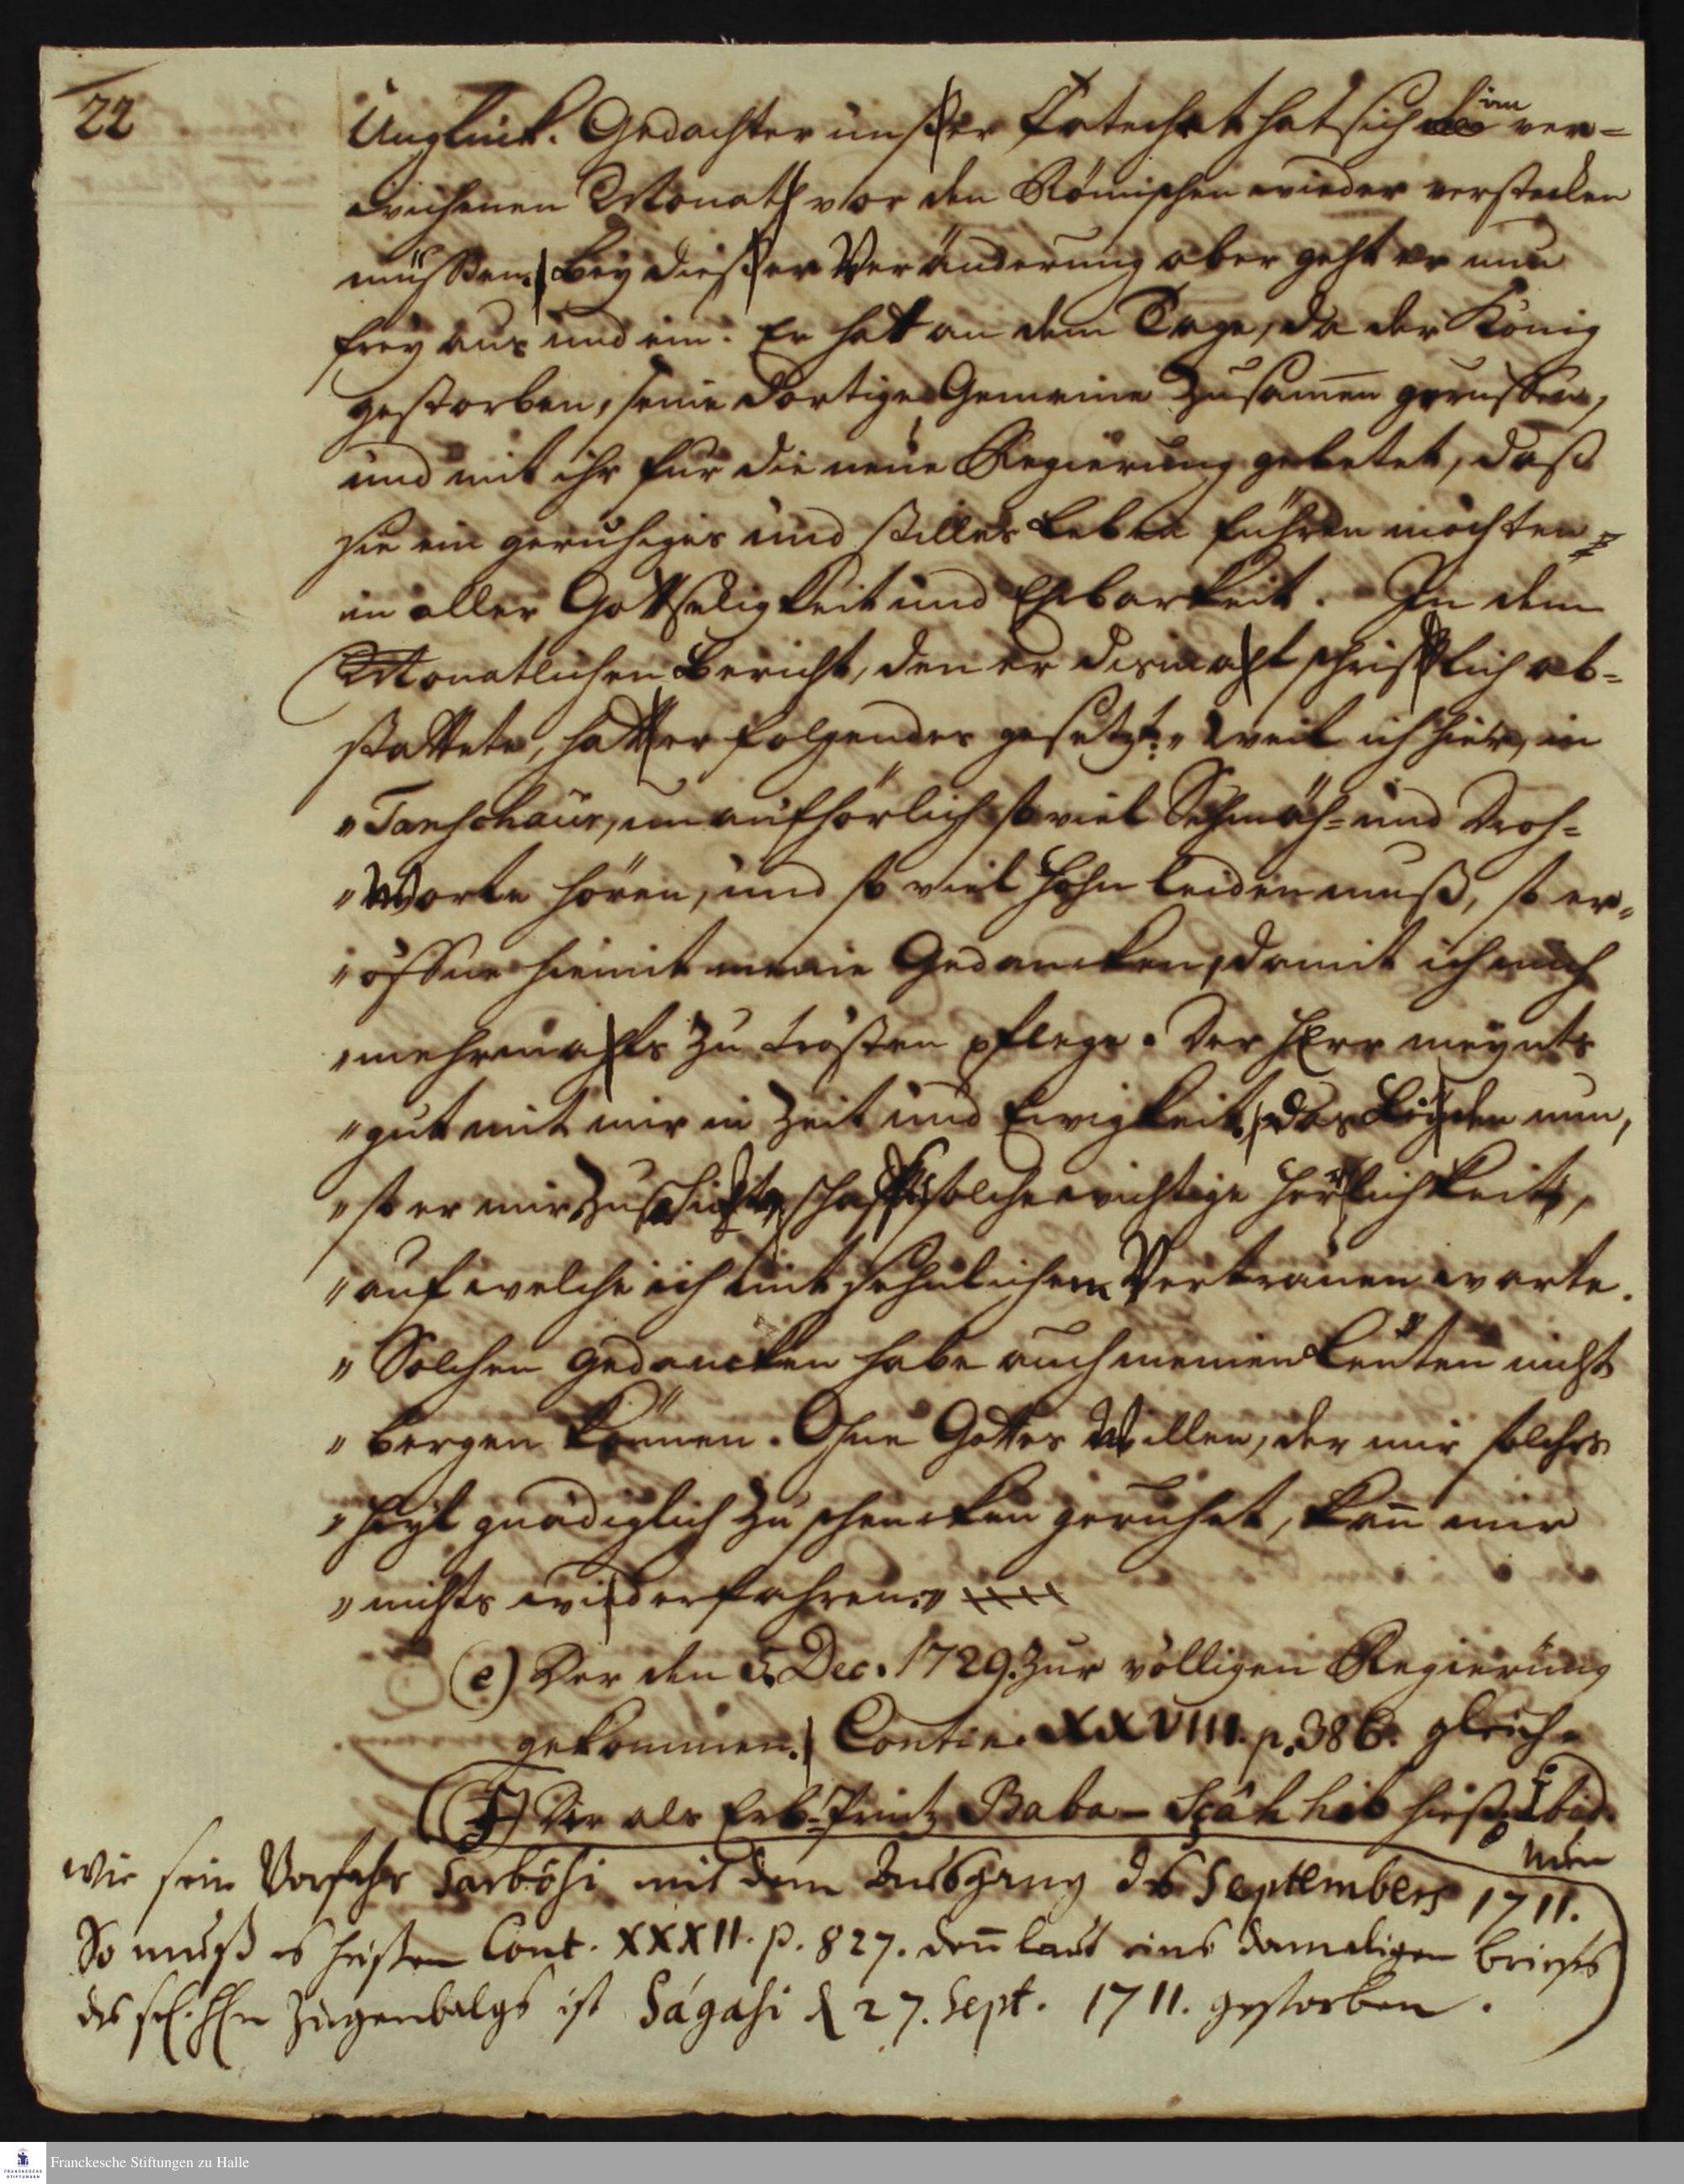 22
Unglück. Gedachter unßer Catechet hat sich im ver=
wichenen Monath vor den Römischen wieder verstecken
müssen. Bey dießer Veränderung aber geht er nun
frey aus und ein. Er hat an dem Tage, da der König
gestorben, seine dortige Gemeine zusam̄en geruffen,
und mit ihr für die neue Regierung gebetet, daß
sie ein geruhiges und stilles Leben führen möchten
in aller Gottseligkeit und Ehrbarkeit. In dem
Monatlichen Bericht, den er dismahl schrifftlich ab=
stattete, hatt er folgendes gesetzt: „Weil ich hier, in
„Tanschaur, unaufhörlich so viel Schmäh= und Droh=
„Worte hören, und so viel Hohn leiden muß, so er=
„öffne hiemit meine Gedancken, damit ich mich
„mehrmahls zu trösten pflege. Der HErr meynts
„gut mit mir in Zeit und Ewigkeit. das Leyden nun,
„so er mir zuschickt, schafft solche wichtige Herrlichkeit,
„auf welche ich mit sehnlichem Vertrauen warte.
„Solchen Gedancken habe auch meinen Leuten nicht
„bergen können. Ohne Gottes Willen, der mir solches
„Heyl gnädiglich zu schencken geruhet, kan̄ mir
„nichts wiederfahren."
(e) Der den 5. Dec. 1729. zur völligen Regierung
gekommen. Contin. XXVIII. p. 386. gleich=
(f) Der als Erb=Printz Baba-Sçâhhib hieß. Ibid.
wie sein Vorfahr Sarbóhi mit dem Ausgang des Septembers 1711.
So muß es heißen Cont. XXXII. p. 827. den̄ laut eines damaligen briefes
des sel. HEn Ziegenbalgs ist Ságasi d 27. Sept. 1711. gestorben.
Franckesche Stiftungen zu Halle